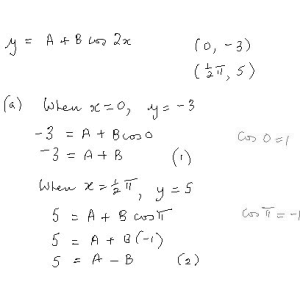 y = A + B cos 2x (0, -3)
(½π, 5)
(a) When x=0, y=-3
-3 = A + B cos 0 cos 0 = 1
-3 = A + B (1)
When x = ½π, y = 5
5 = A + B cos π cos π = -1
5 = A + B(-1)
5 = A - B (2)